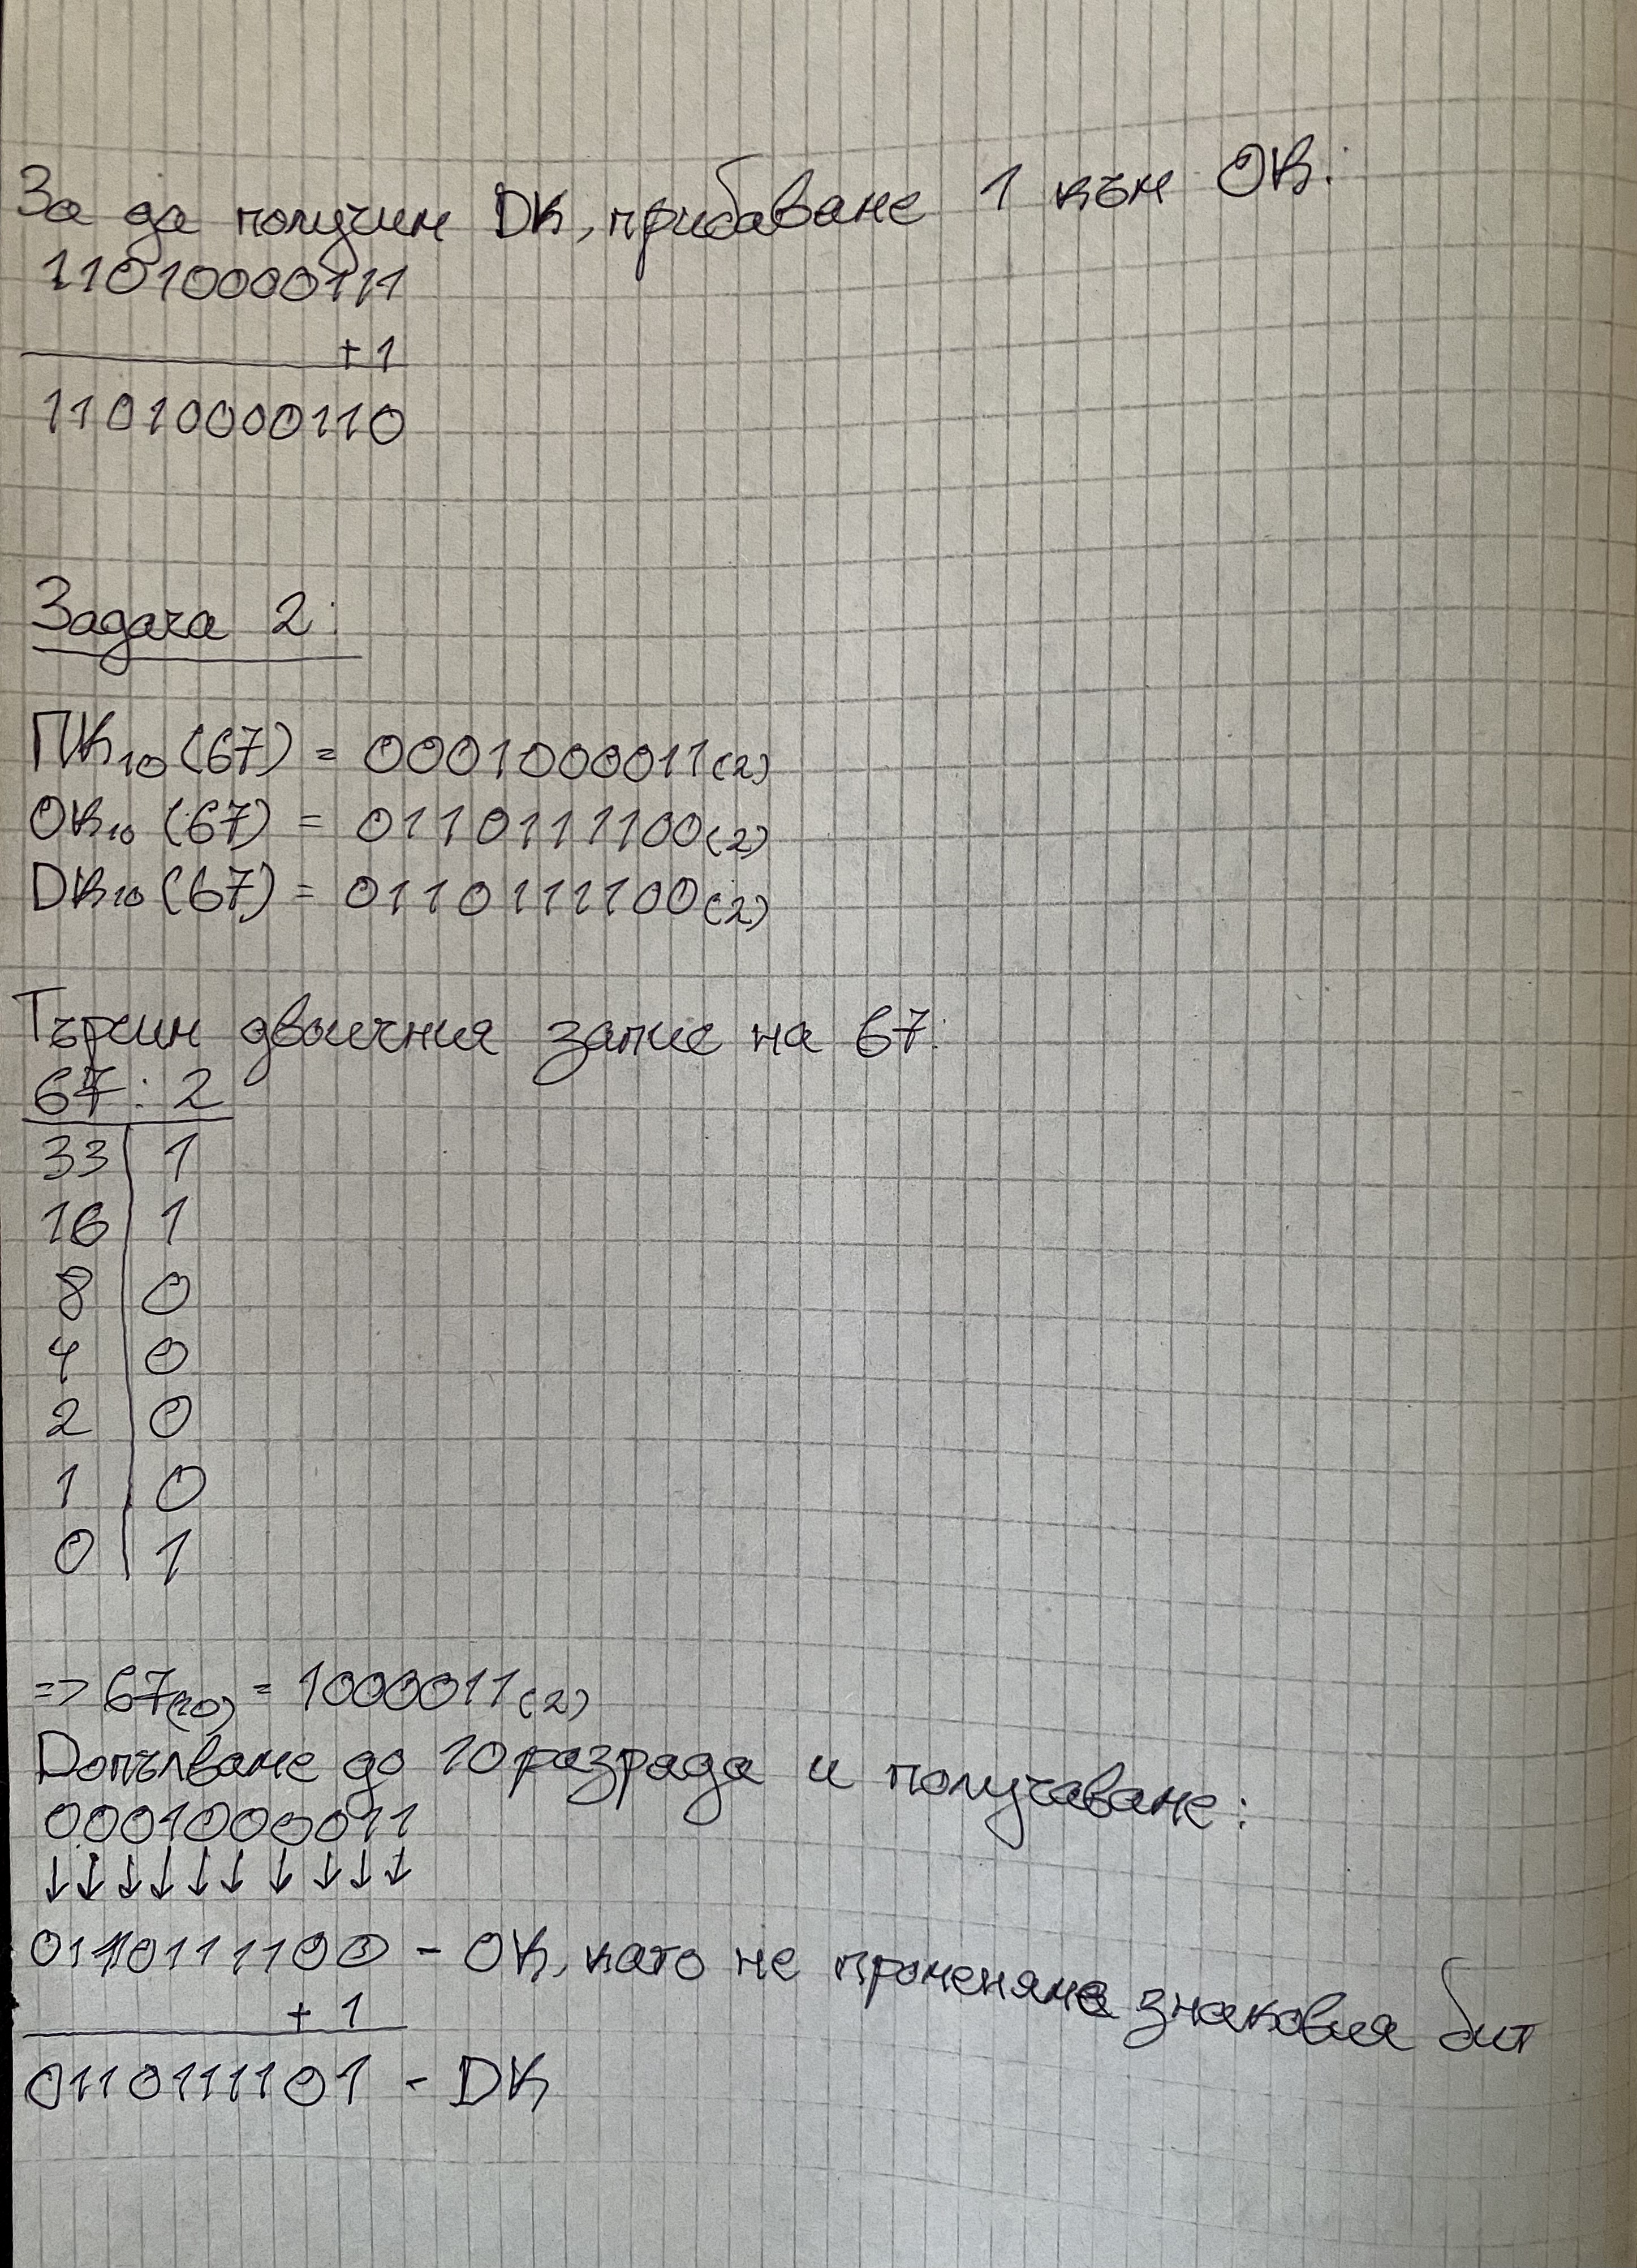 За да получим DK, прибаваме 1 към ОК:
11010000111
+ 1
11010000110
Задача 2:
ПК₁₀ (67) = 0001000011(2)
ОК₁₀ (67) = 0110111100(2)
DK₁₀ (67) = 0110111100(2)
Търсим двоичния запис на 67:
67 : 2
33 | 1
16 | 1
8 | 0
4 | 0
2 | 0
1 | 0
0 | 1
=> 67(10) = 1000011(2)
Dопълваме до 10 разряда и получаваме:
0001000011
↓↓↓↓↓↓↓↓↓↓
0110111100 - ОК, като не променяме знаковия бит
+ 1
0110111101 - DK